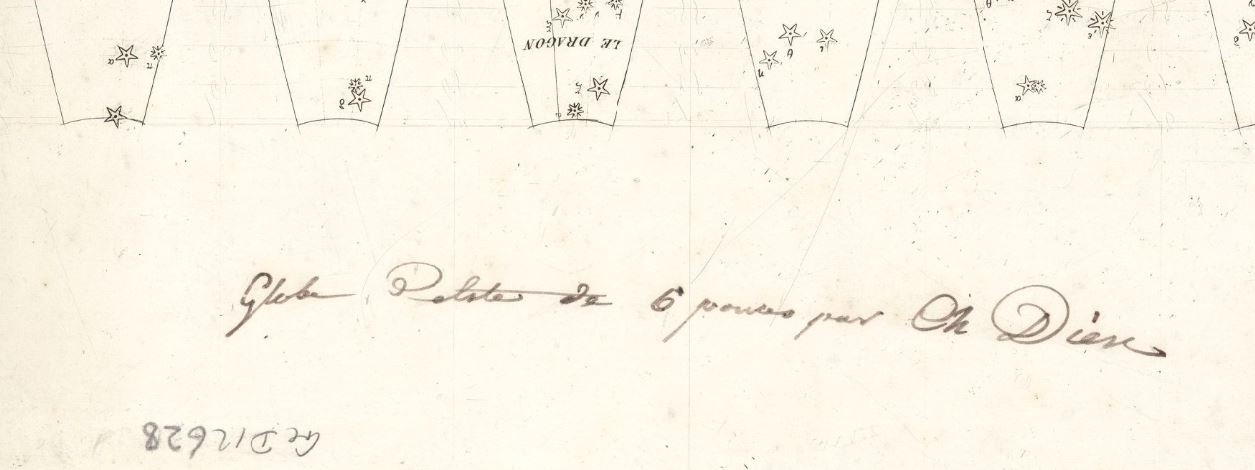 LE DRAGON
Globe Celeste de 6 pouces par Ch Dien
Ge D12628